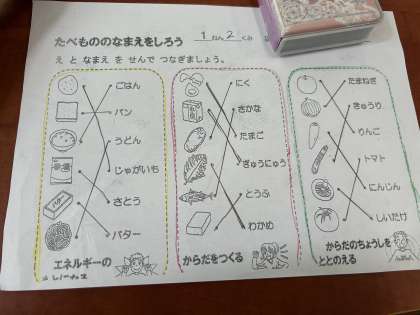 たべもののなまえをしろう
1ねん2くみ
え と なまえ を せんで つなぎましょう。
ごはん
パン
うどん
じゃがいも
さとう
バター
エネルギーの
にく
さかな
たまご
ぎゅうにゅう
とうふ
わかめ
からだをつくる
たまねぎ
きゅうり
りんご
トマト
にんじん
しいたけ
からだのちょうしを
ととのえる